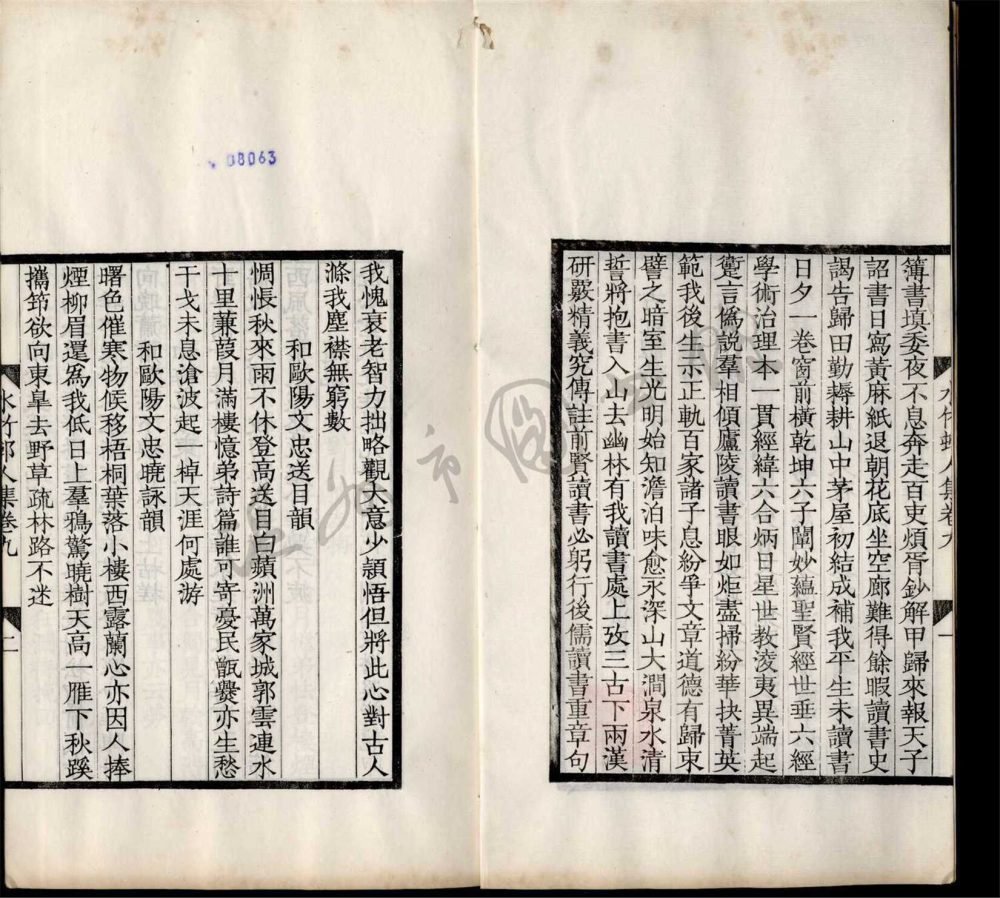 簿書填委夜不息奔走百吏煩胥鈔解甲歸來報天子
詔書日寫黃麻紙退朝花底坐空廊難得餘暇讀書史
謁告歸田勤耨耕山中茅屋初結成補我平生未讀書
日夕一卷窗前橫乾坤六子闡妙蘊聖賢經世垂六經
學術治理本一貫經緯六合炳日星世教淩夷異端起
躛言僞說羣相傾廬陵讀書眼如炬盡掃紛華抉菁英
範我後生示正軌百家諸子息紛爭文章道德有歸束
譬之暗至生光明始知澹泊味愈永深山大澗泉水清
誓將抱書入山去幽林有我讀書處上攷三古下兩漢
研嚴精義究傳註前賢讀書必躬行後儒讀書重章句
水竹邨人集卷九
一
我愧衰老智力拙略觀大意少頴悟但將此心對古人
滌我塵襟無窮數
和歐陽文忠送目韻
惆悵秋來雨不休登高送目白蘋洲萬家城郭雲連水
十里蒹葭月滿樓憶弟詩篇誰可寄憂民甑爨亦生愁
干戈未息滄波起一棹天涯何處游
和歐陽文忠曉詠韻
曙色催寒物候移梧桐葉落小樓西露蘭心亦因人捧
煙柳眉還為我低日上羣鴉驚曉樹天高一雁下秋蹊
攜筇欲向東皐去野草疏林路不迷
水竹邨人集卷九
二
08063